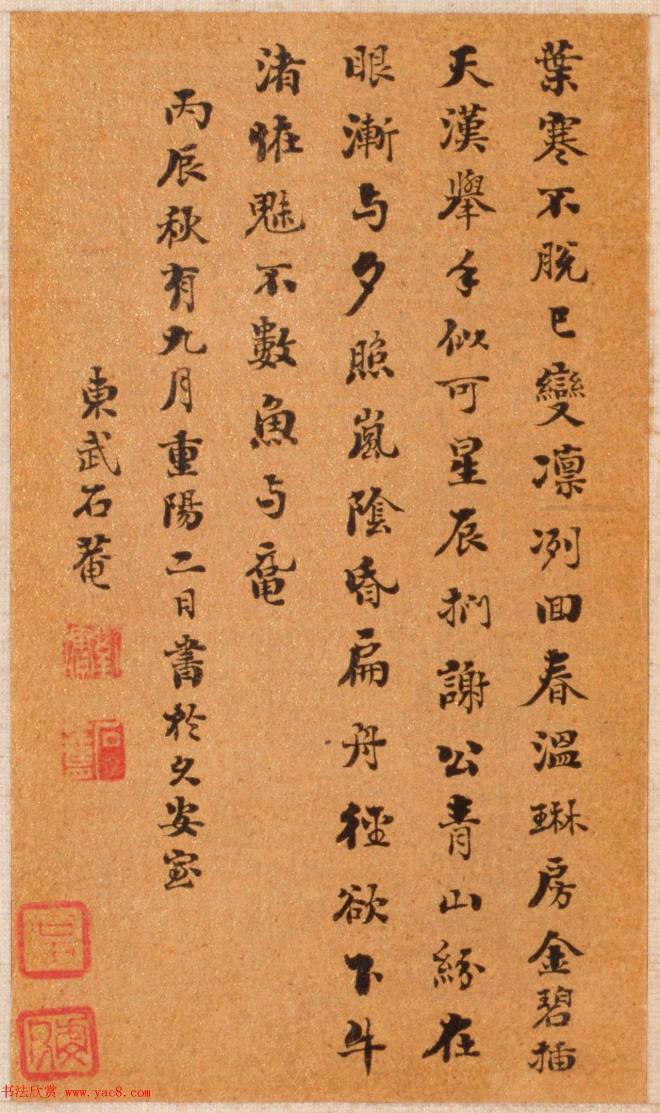 葉寒不脫已變凛冽回春溫琳房金碧插
天漢舉手似可星辰捫謝公青山紛在
眼漸与夕照嵐陰昏扁舟徑欲下牛
渚恠魅不數魚与黿
丙辰秋有九月重陽二日書於久安室
東武石菴
书法欣赏 www.yac8.com